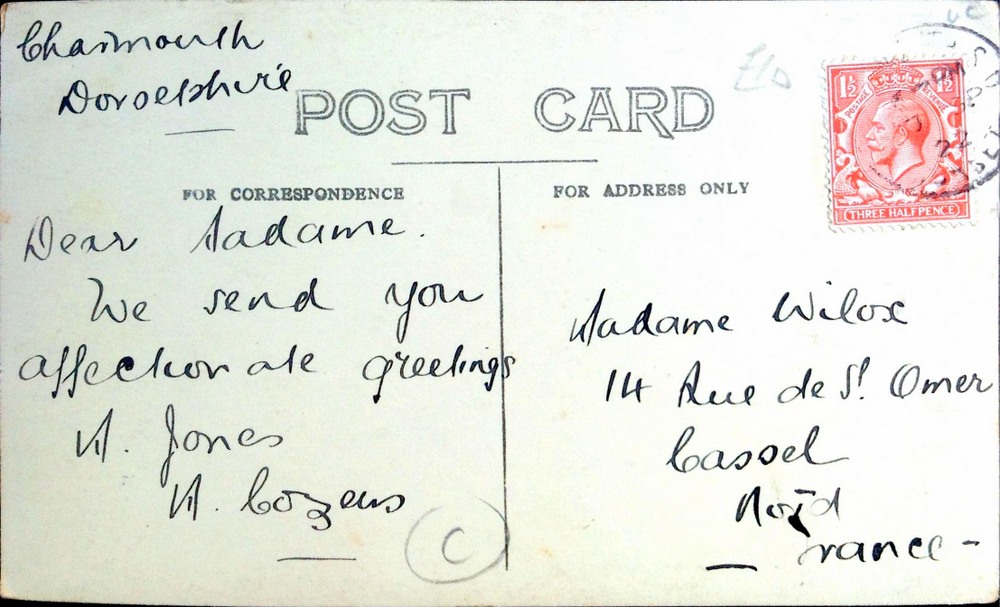 Charmouth
Dorsetshire
POST CARD
FOR CORRESPONDENCE
FOR ADDRESS ONLY
1½ 1½
POSTAGE REVENUE
THREE HALFPENCE
Dear Madame.
We send you
affectionate greetings
M. Jones
M. Cozens
C
Madame Wilox
14 Rue de St. Omer
Cassel
Nord
France -